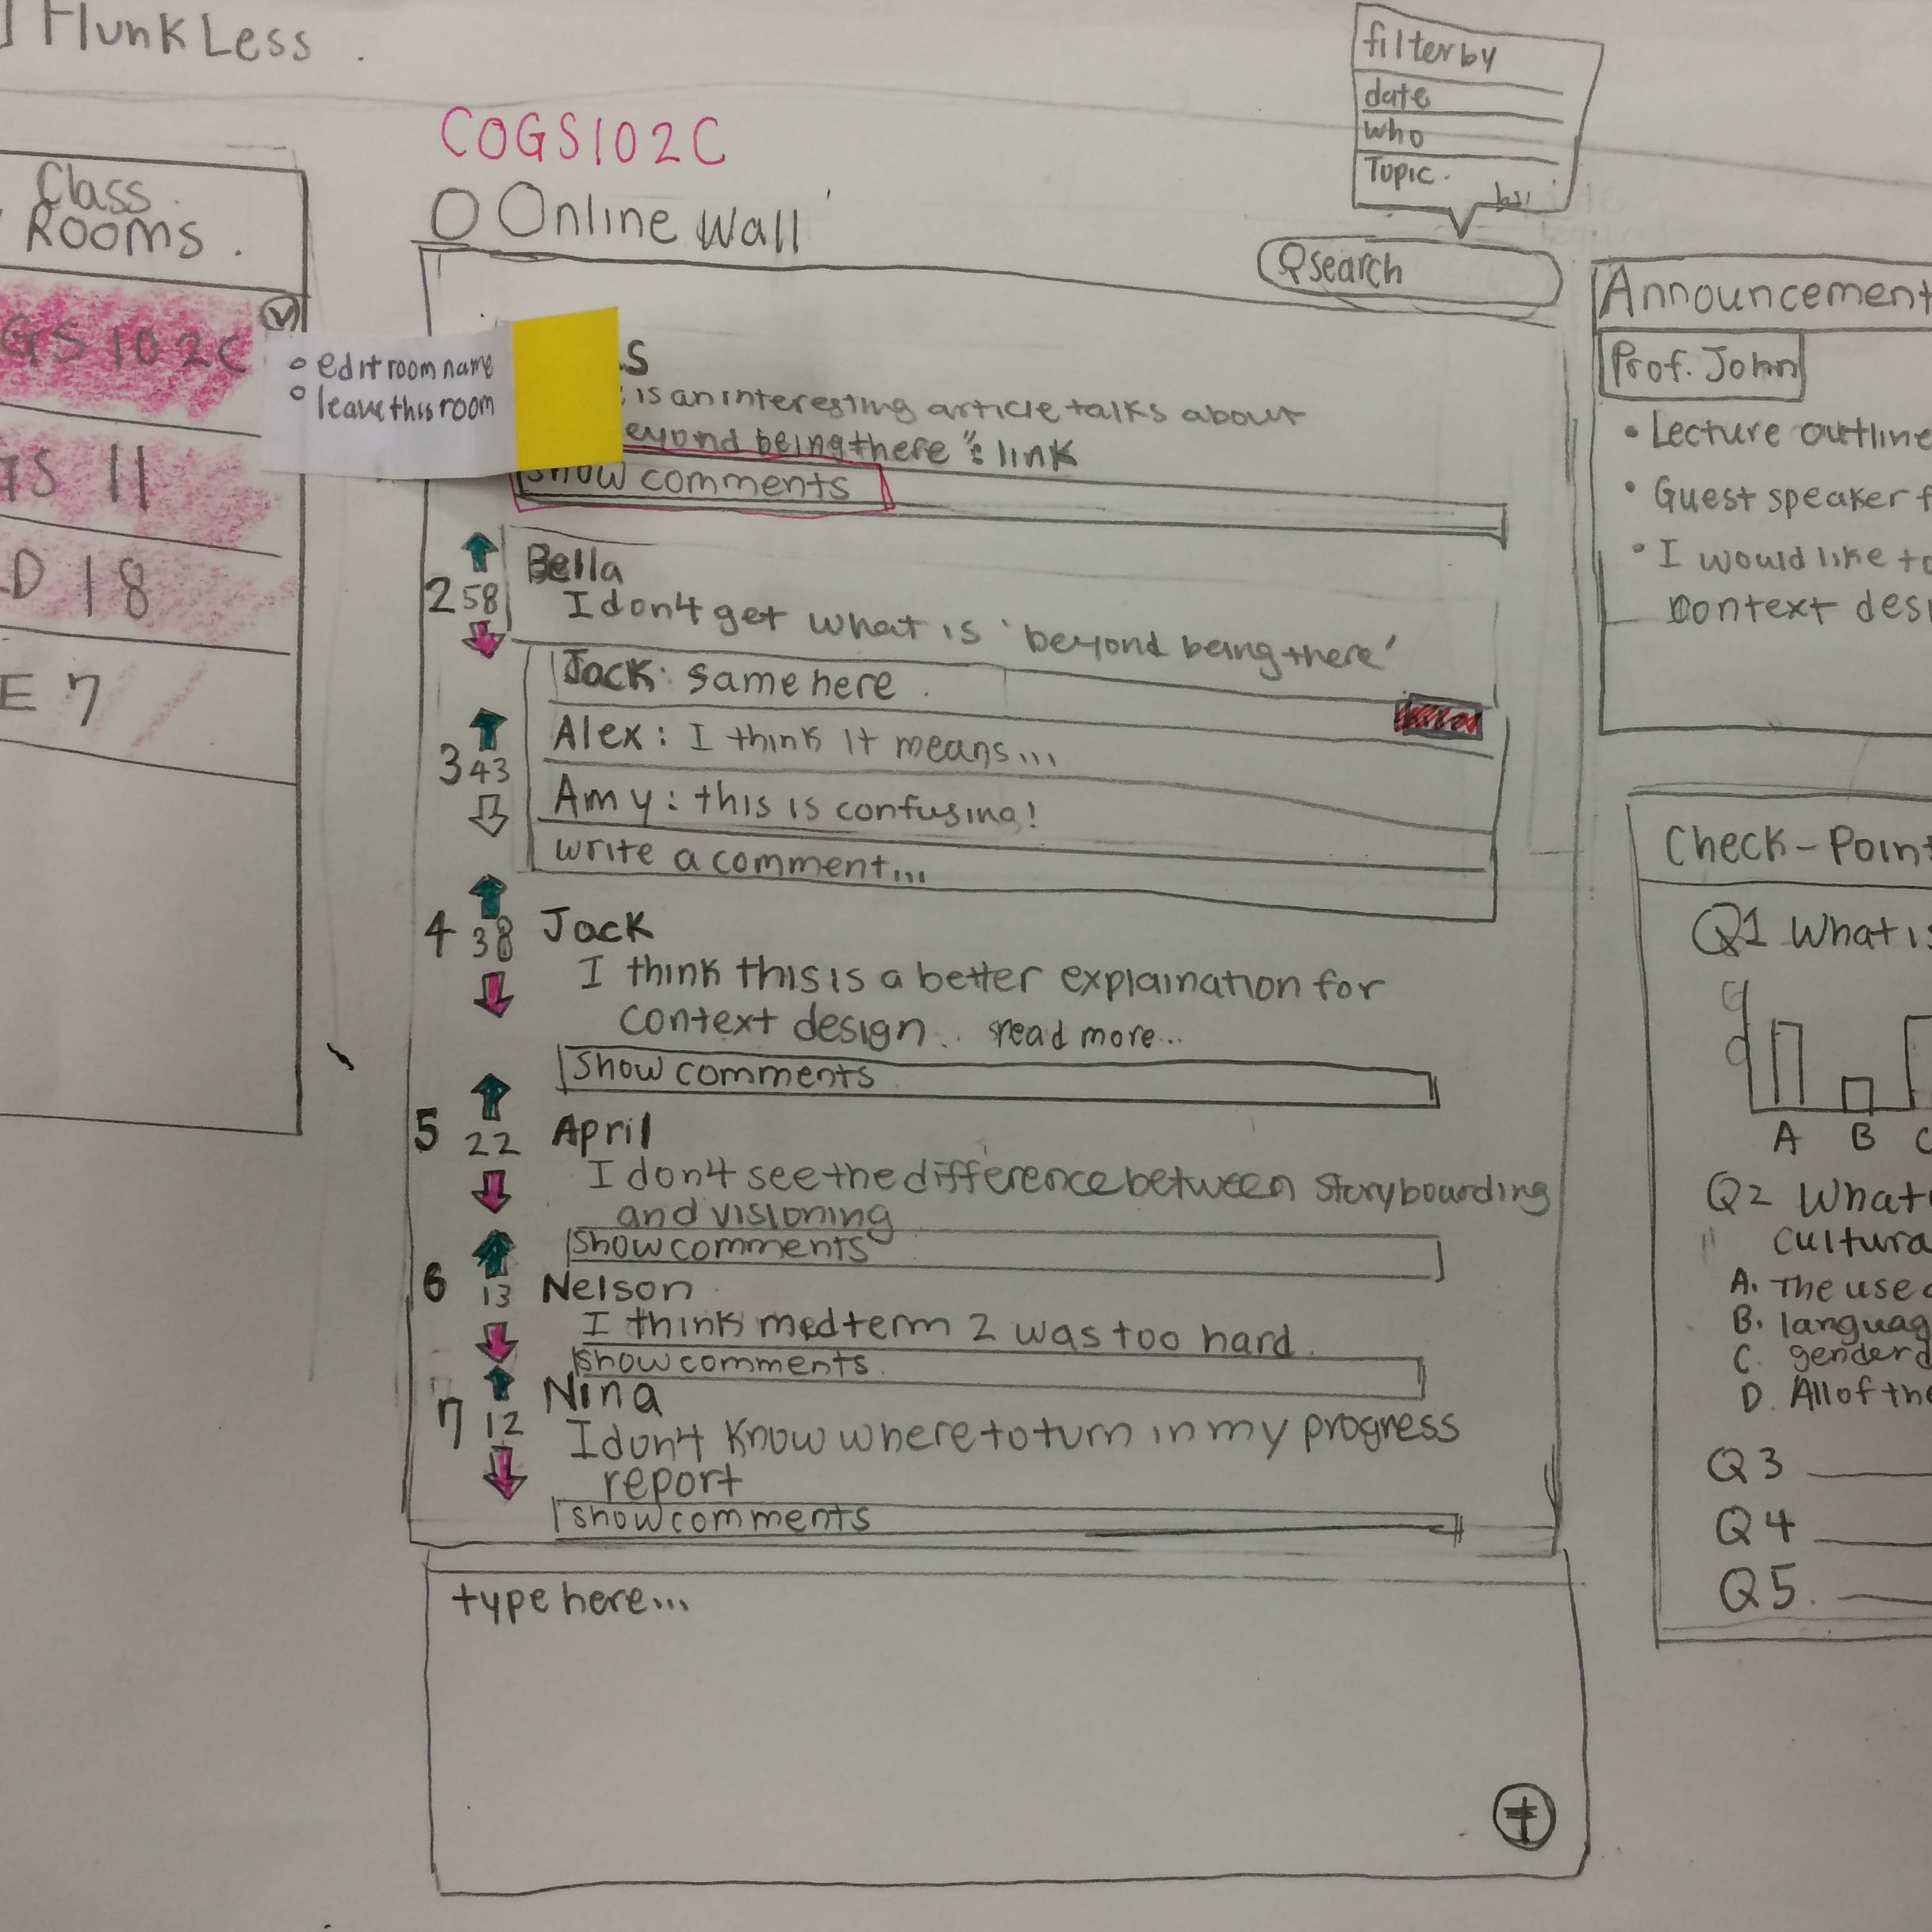 FlunkLess
filter by
date
who
Topic.
by
COGS102C
Online Wall
search
Class
Rooms.
GS 102C
GS 11
D 18
E 7
edit room name
leave this room
s
is an interesting article talks about
eyond being there": link
show comments
2 58 Bella
I don't get what is 'beyond being there'
Jack: same here.
Alex: I think it means...
3 43
Amy: this is confusing!
write a comment...
4 38 Jack
I think this is a better explaination for
context design.. read more...
Show comments
5 22 April
I don't see the difference between storyboarding
and visioning
Show comments
6 13 Nelson
I think medterm 2 was too hard.
Show comments.
7 12 Nina
I don't know where to turn in my progress
report
show comments
type here...
Announcement
Prof. John
• Lecture outline
• Guest speaker f
• I would like to
context desi
Check-Point
Q1 What is
A B C
Q2 What
cultura
A. The use
B. languag
C. gender d
D. All of the
Q3
Q4
Q5.